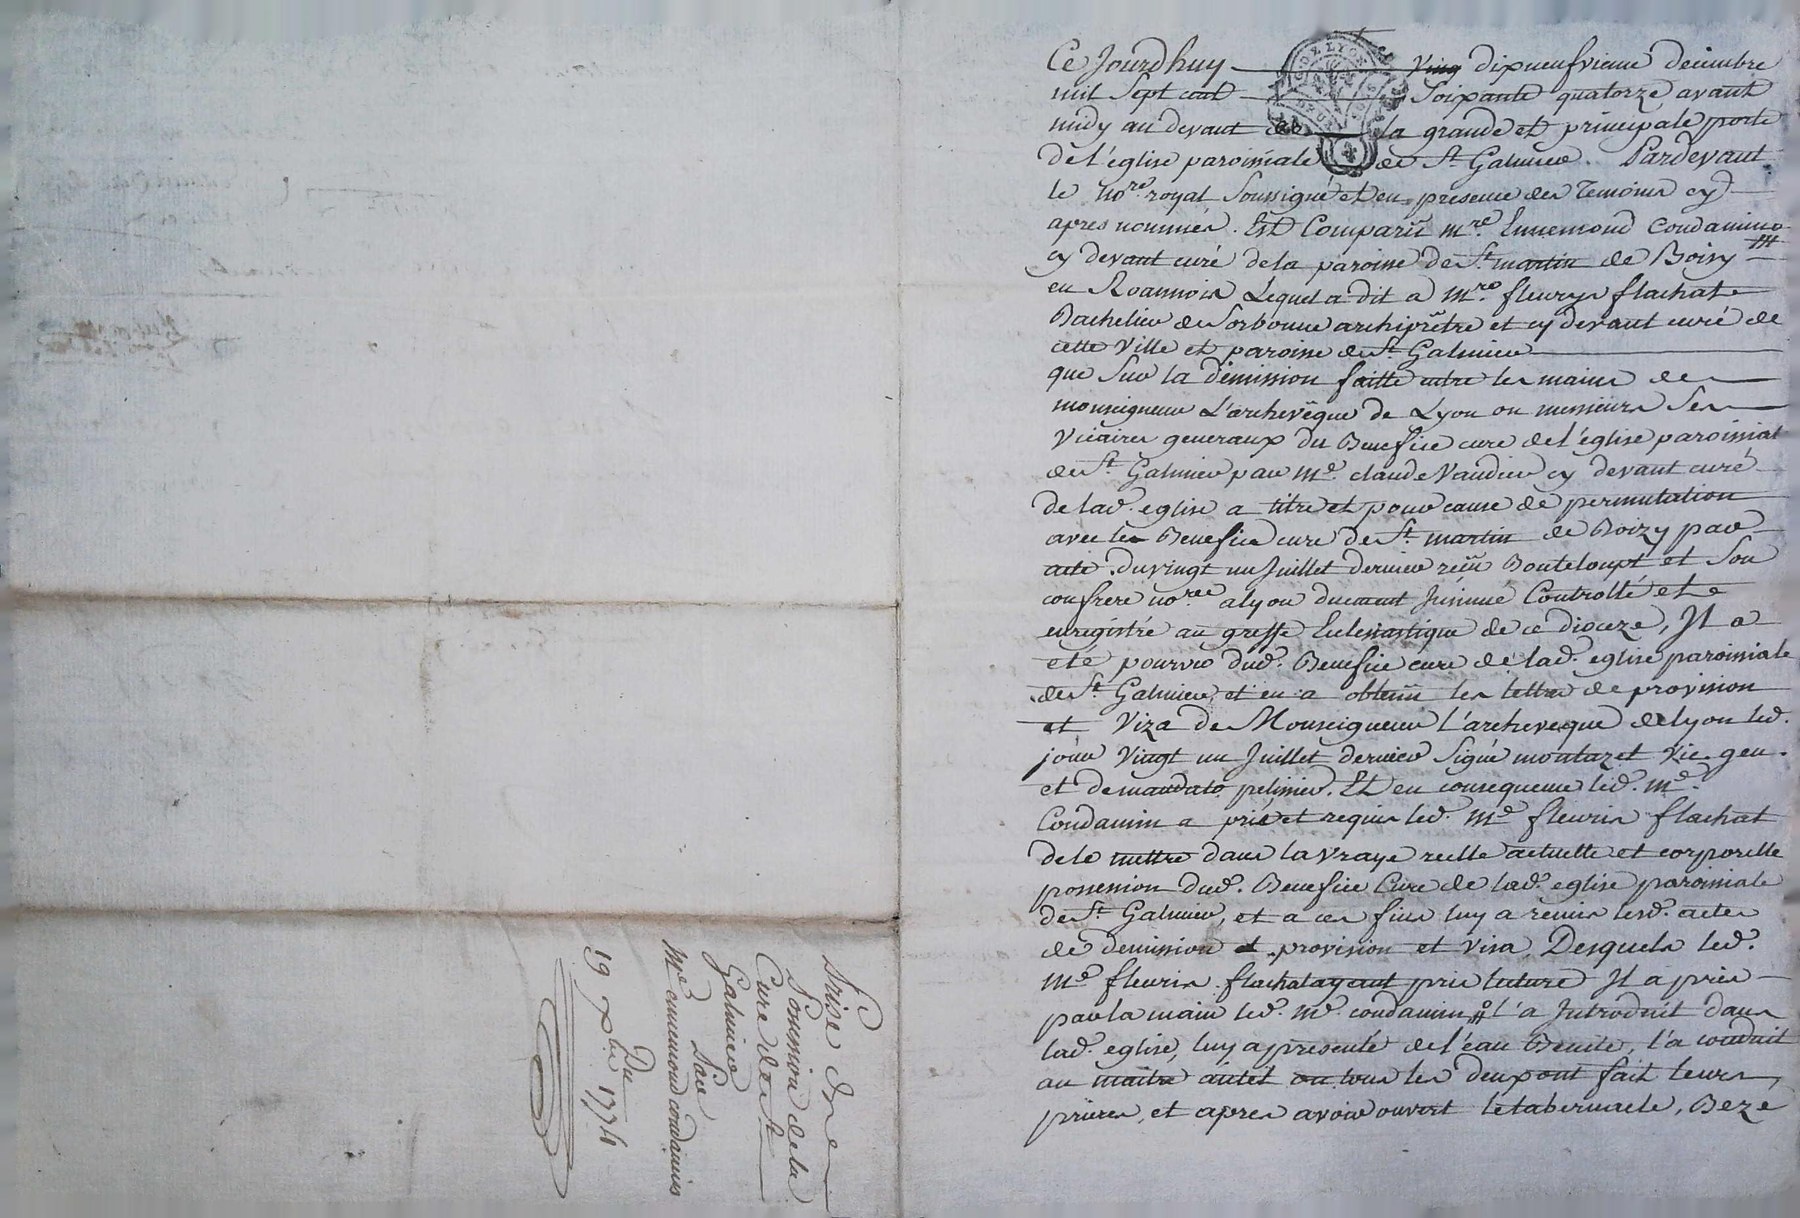 Prise de
Possession de la
Cure de St
Galmier
Par
Mre ennemond condamin
Du
19 xbre 1774
Ce Jourdhuy dixneufvieme decembre
mil Sept cent Soixante quatorze, avant
midy au devant de la grande et principale porte
de l'eglise paroissiale de St Galmier. Pardevant
le No.re royal Soussigné et en presence des Temoins cy
apres nommés. Est Comparû Mre. Ennemond Condamin
cy devant curé de la paroisse de St. martin de Boisy
en Roannois Lequel a dit a Mre. fleurys flachat
Bachelier de Sorbonne archiprêtre et cy devant curé de
cette Ville et paroisse de St. Galmier
que Sur la demission faitte entre les mains de
monseigneur L'archevêque de Lyon ou messieurs Ses
Vicaires generaux du Benefice cure de l'église paroissial
de St. Galmier par Me. claude Vaudier cy devant curé
de lad. eglise a titre et pour cause de permutation
avec le Benefice cure de St. martin de Boizy par
acte du vingt un Juillet dernier reçû Bouteloupt et Son
confrere no.res a lyon duement Jnsinué Controllé et
enregistré au greffe Eclesiastique de ce dioceze, Jl a
eté pourvû dud. Benefice cure de lad. eglise paroissiale
de St. Galmier, et en a obtenû les lettres de provision
et Viza de Monseigneur L'archeveque de lyon led.
jour Vingt un Juillet dernier Signé montazet Vic. gen.
et de mandato pelissier. Et en consequence led. Me.
Condamin a prié et requis led. Me fleuris flachat
de le mettre dans la vraye reelle actuelle et corporelle
possession dud. Benefice Cure de lad. eglise paroissiale
de St. Galmier, et a ces fins luy a remis lesd. actes
de demission et provision et visa, Desquels led.
Me fleuris flachat ayant pris lecture Jl a pris
par la main led. Me. condamin l'a Jntroduit dans
lad. eglise, luy a presenté de l'eau Benite, l'a conduit
au maître autel ou tous les deux ont fait leurs
prieres, et apres avoir ouvert le tabernacle, Bezé